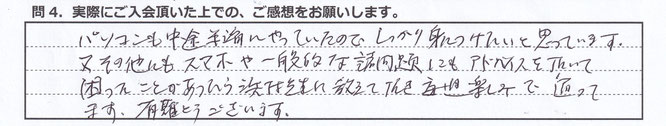 問４．実際にご入会頂いた上での、ご感想をお願いします。
パソコンも中途半端にやっていたので しっかり身につけたいと思っています。
又その他にもスマホや一般的な諸問題にもアドバイスを頂いて
困ったことがあったら先生に教えて頂き 楽しみで 通って
ます。有難とうございます。